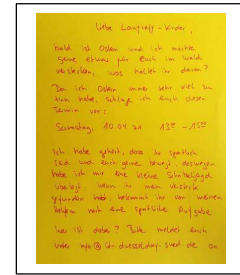 Liebe Lauftreff-Kinder,
bald ist Ostern und ich möchte
gerne etwas für Euch im Wald
verstecken, was haltet ihr davon?
Da ich Ostern immer sehr viel zu
tun habe, schlage ich euch diesen
Termin vor:
Samstag, 10.04.21 13:00 - 15:00
Ich habe gehört, dass ihr sportlich
seid und euch gerne bewegt, deswegen
habe ich mir eine kleine Schnitzeljagd
überlegt. Wenn ihr mein Versteck
gefunden habt, bekommt ihr von meinen
Helfern noch eine sportliche Aufgabe
Wer ist dabei? Bitte meldet euch
unter info@